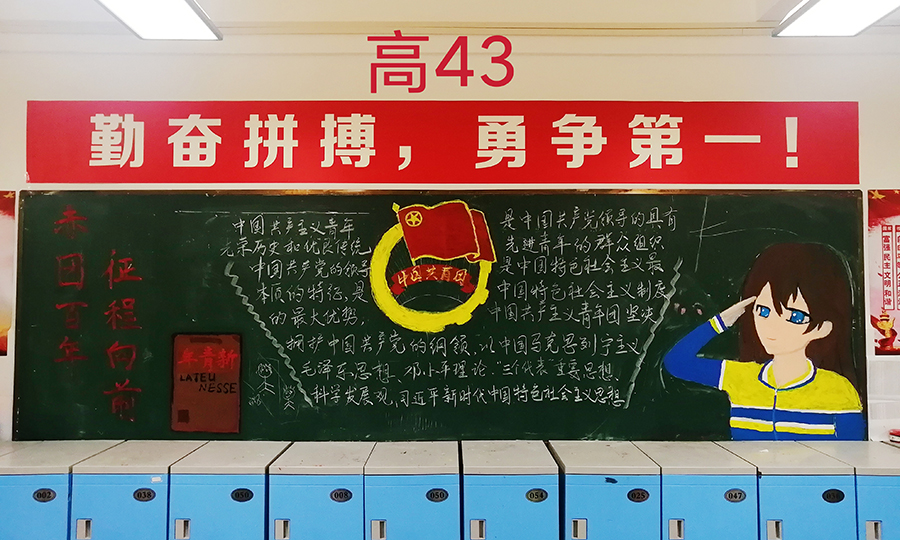 高43
勤奋拼搏，勇争第一！
赤团百年
征程向前
中国共产主义青年
光荣历史和优良传统
中国共产党的领导
本质的特征，是
的最大优势，
是中国共产党领导的具有
先进青年的群众组织
是中国特色社会主义最
中国特色社会主义制度
中国共产主义青年团坚决
拥护中国共产党的纲领，以中国马克思列宁主义
毛泽东思想、邓小平理论、“三个代表”重要思想、
科学发展观、习近平新时代中国特色社会主义思想
中国共青团
新青年
LA JEUNESSE
富强民主文明和谐
002
038
050
008
050
054
025
047
036